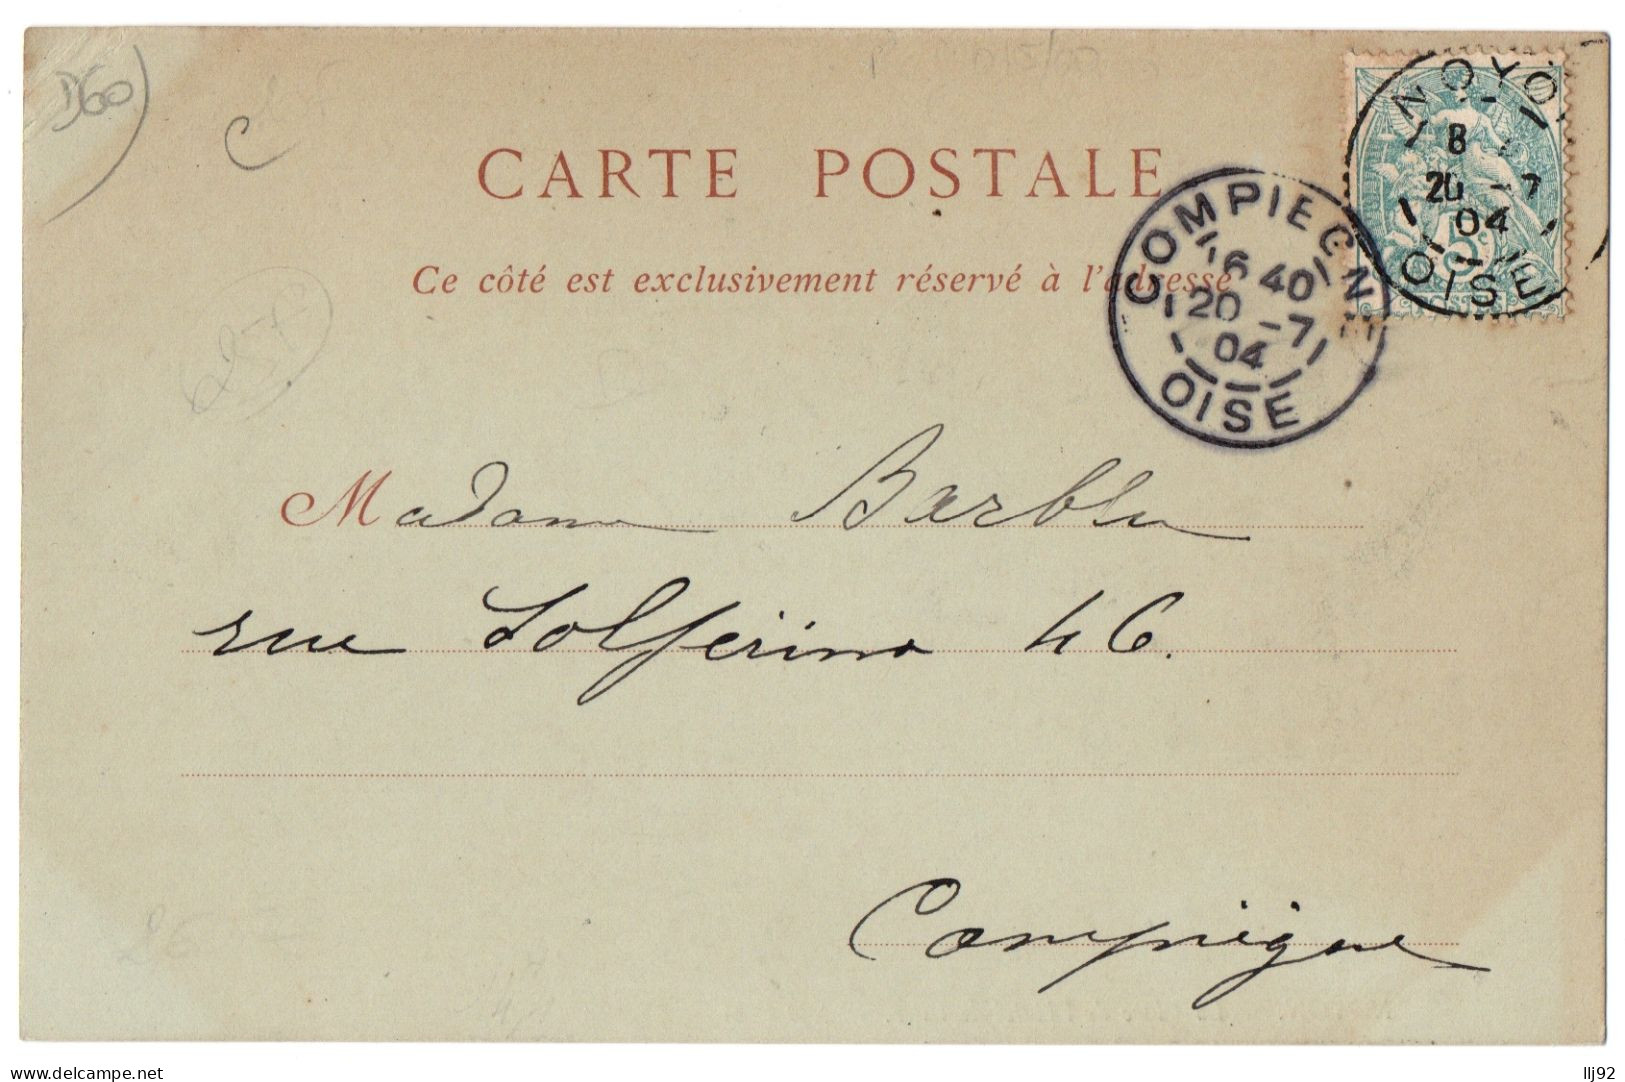 D60
CARTE POSTALE
Ce côté est exclusivement réservé à l'adresse
NOYO
8
20 -7
04
OISE
5c
POSTES
COMPIEGNE
16 40
20 -7
04
OISE
25F
Madame
rue Solférino 46.
Compiègne
delcampe.net
llj92